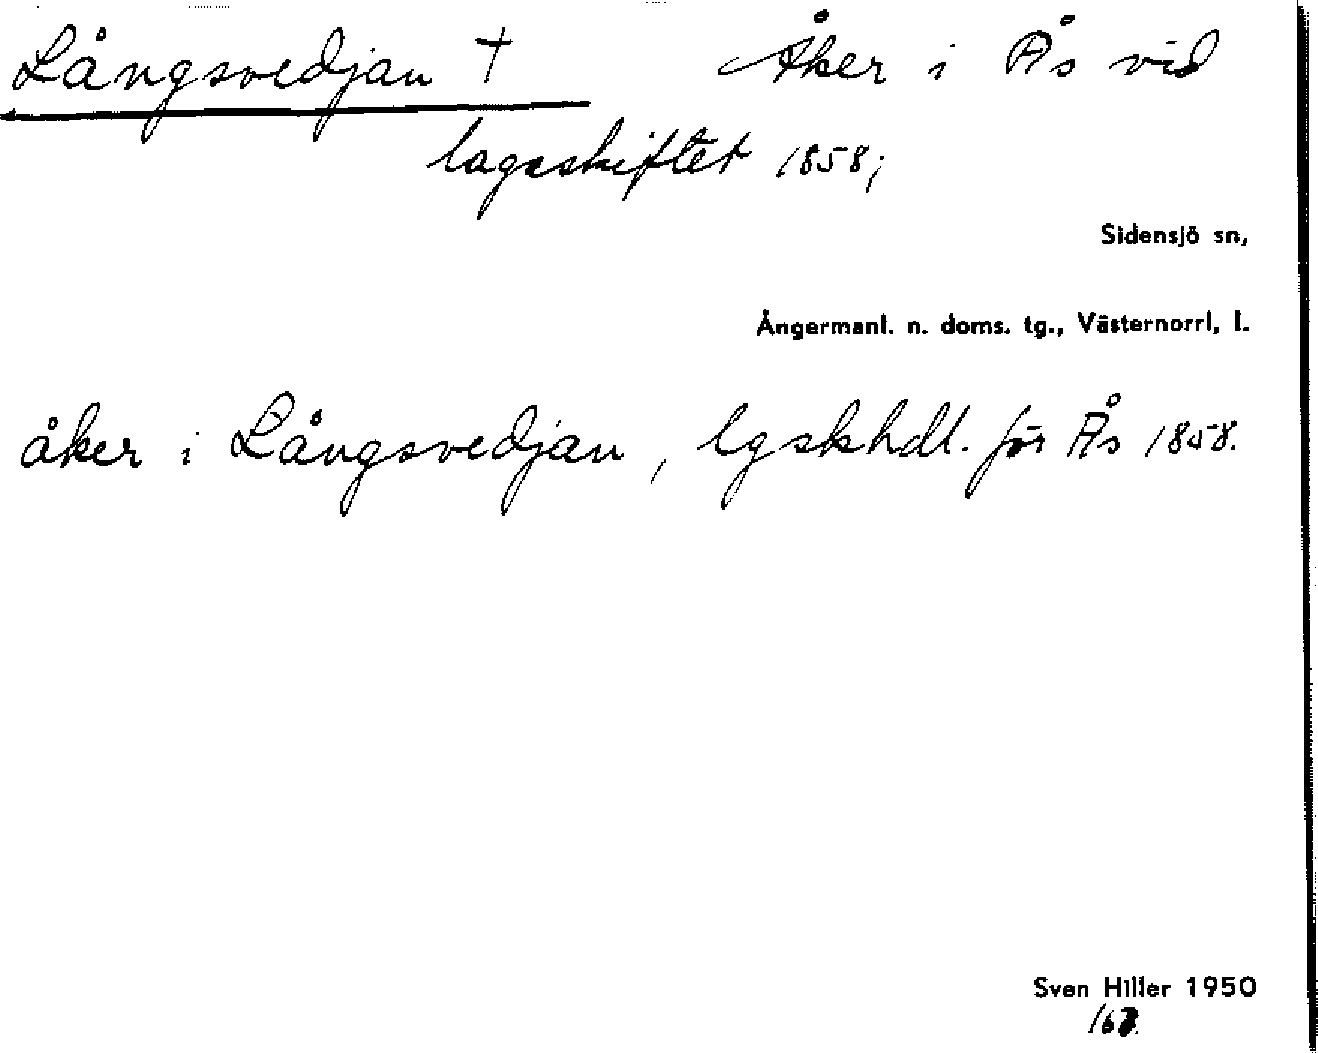 Långsvedjan † Åker i Ås vid
lagaskiftet 1858;
Sidensjö sn,
Ångermanl. n. doms. tg., Västernorrl, l.
åker i Långsvedjan, lgskhdl. för Ås 1858.
Sven Hiller 1950